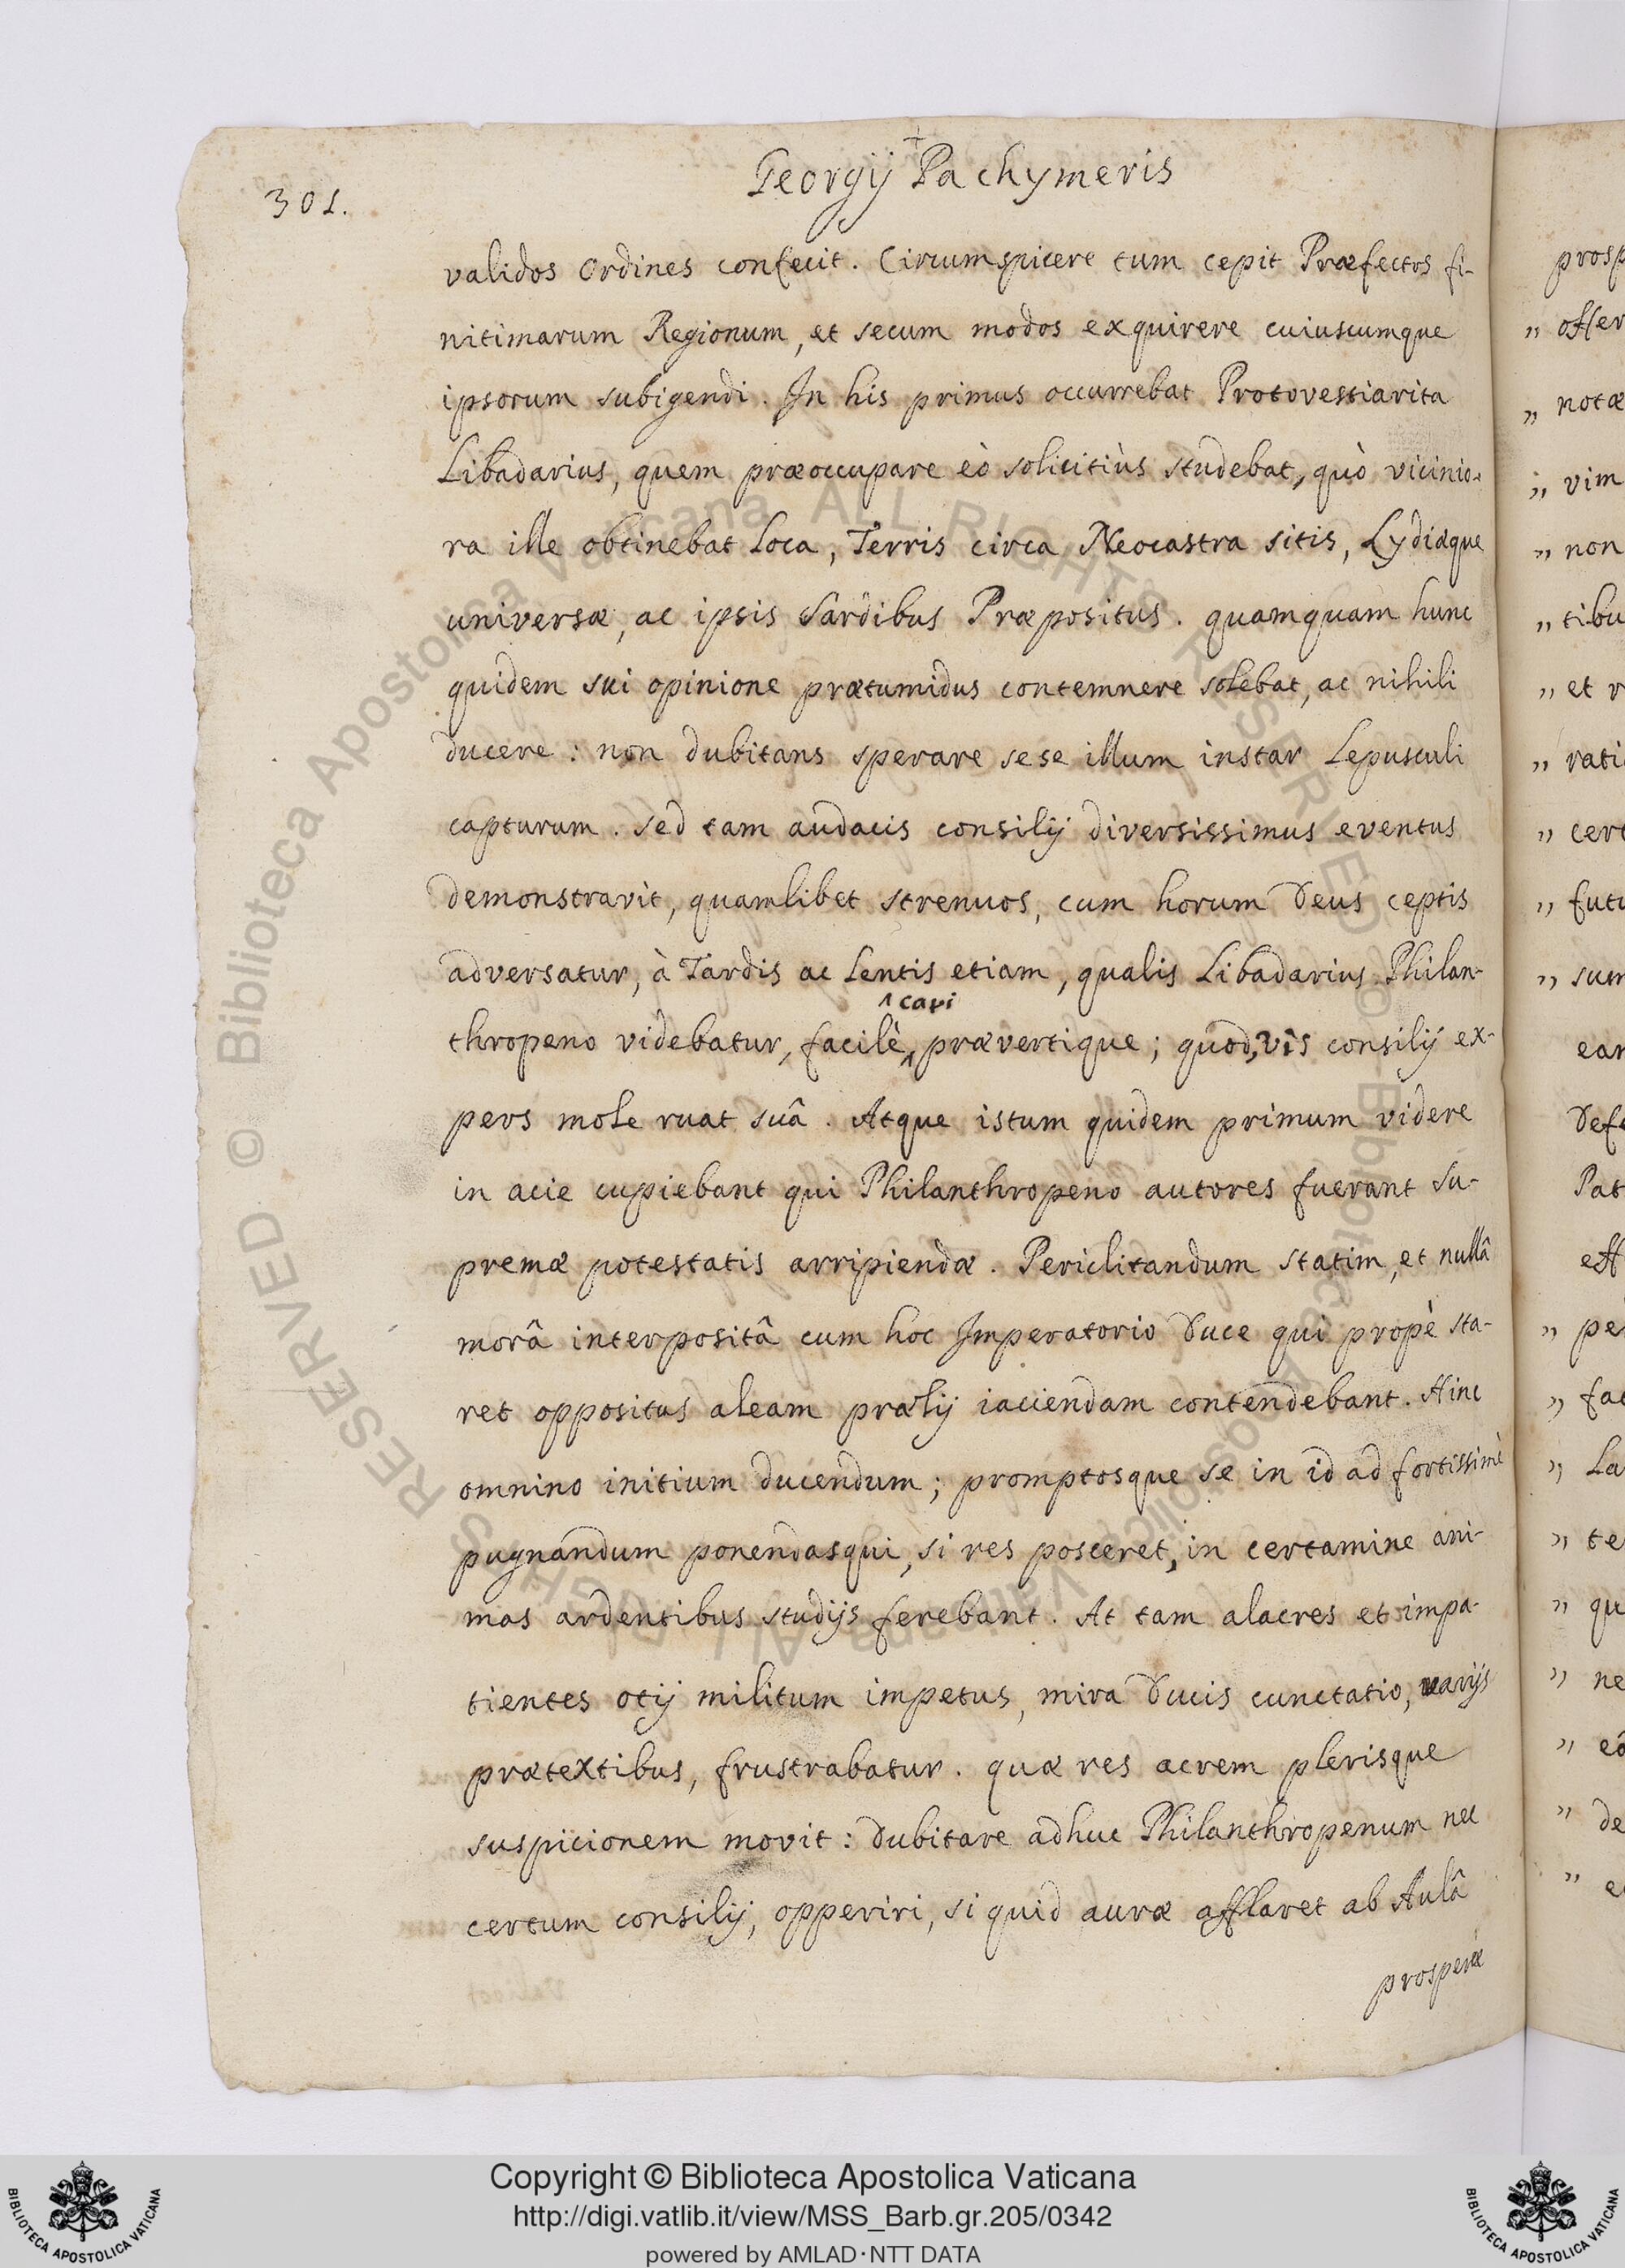 Georgij Pachymeris
301.
validos ordines confecit. Circumspicere tum cepit Præfectos fi-
nitimarum Regionum, et secum modos exquirere cuiuscumque
ipsorum subigendi. In his primus occurrebat Protovestiarita
Libadarius, quem præoccupare eò solicitiùs studebat, quò vicinio-
ra ille obtinebat Loca, Terris circa Neocastra sitis, Lydiæque
universæ, ac ipsis Sardibus Præpositus. quamquam hunc
quidem sui opinione prætumidus contemnere solebat, ac nihili
ducere: non dubitans sperare sese illum instar Lepusculi
capturum. Sed tam audacis consilij diversissimus eventus
demonstravit, quamlibet strenuos, cum horum Deus ceptis
adversatur, à Tardis ac Lentis etiam, qualis Libadarius Philan-
capi
thropeno videbatur, facilè prævertique; quod, vis consilij ex-
pers mole ruat suâ. Atque istum quidem primum videre
in acie cupiebant qui Philanthropeno autores fuerant su-
premæ potestatis arripiendæ. Periclitandum statim, et nullâ
morâ interpositâ cum hoc Imperatorio Duce qui propè sta-
ret oppositus aleam prælij iaciendam contendebant. Hinc
omnino initium ducendum; promptosque se in id ad fortissimè
pugnandum ponendasqui, si res posceret, in certamine ani-
mas ardentibus studijs ferebant. At tam alacres et impa-
tientes otij militum impetus, mira Ducis cunctatio, varijs
prætextibus, frustrabatur. quæ res acrem plerisque
suspicionem movit: Dubitare adhuc Philanthropenum nec
certum consilij, opperiri, si quid auræ afflaret ab Aulâ
prosperæ
prosp
" offer
" notæ
" vim
" non
" tibu
" et r
" rati
" cert
" futu
" sum
ear
Defe
Pat
eff
" per
" fac
" La
" te
" qu
" ne
" eâ
" de
" e
© Biblioteca Apostolica Vaticana ALL RIGHTS RESERVED © Biblioteca Apostolica Vaticana ALL RIGHTS RESERVED
Copyright © Biblioteca Apostolica Vaticana
http://digi.vatlib.it/view/MSS_Barb.gr.205/0342
powered by AMLAD·NTT DATA
BIBLIOTECA APOSTOLICA VATICANA
BIBLIOTECA APOSTOLICA VATICANA